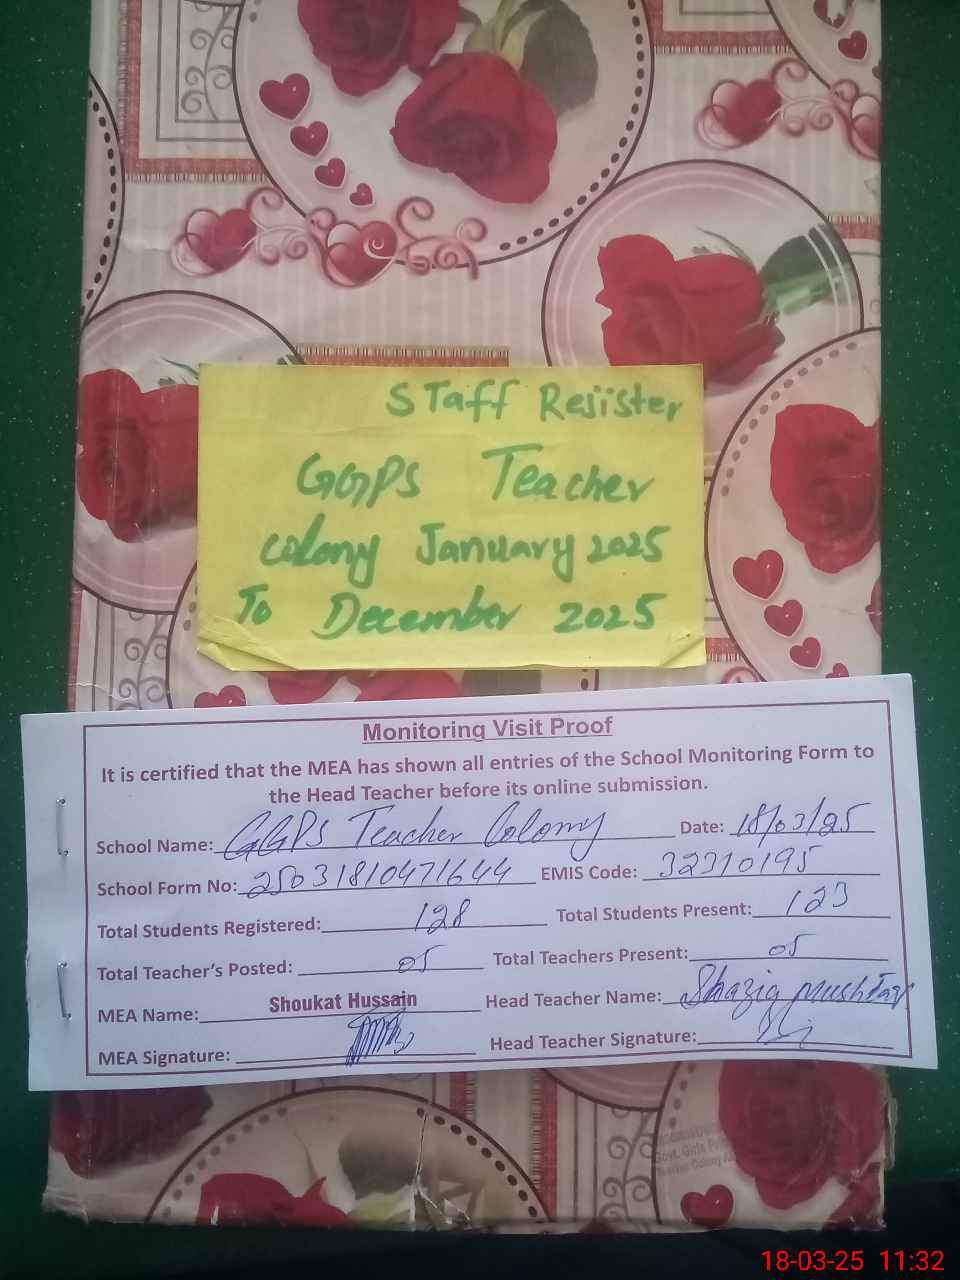 STaff Resister
GGPS Teacher
Colony January 2025
To December 2025
Monitoring Visit Proof
It is certified that the MEA has shown all entries of the School Monitoring Form to
the Head Teacher before its online submission.
School Name: GGPS Teacher Colony Date: 18/03/25
School Form No: 25031810471644 EMIS Code: 32310195
Total Students Registered: 128 Total Students Present: 123
Total Teacher's Posted: 05 Total Teachers Present: 05
MEA Name: Shoukat Hussain Head Teacher Name: Shazia Mushtaq
MEA Signature: Head Teacher Signature:
Govt. Girls
Teacher Colony
18-03-25 11:32